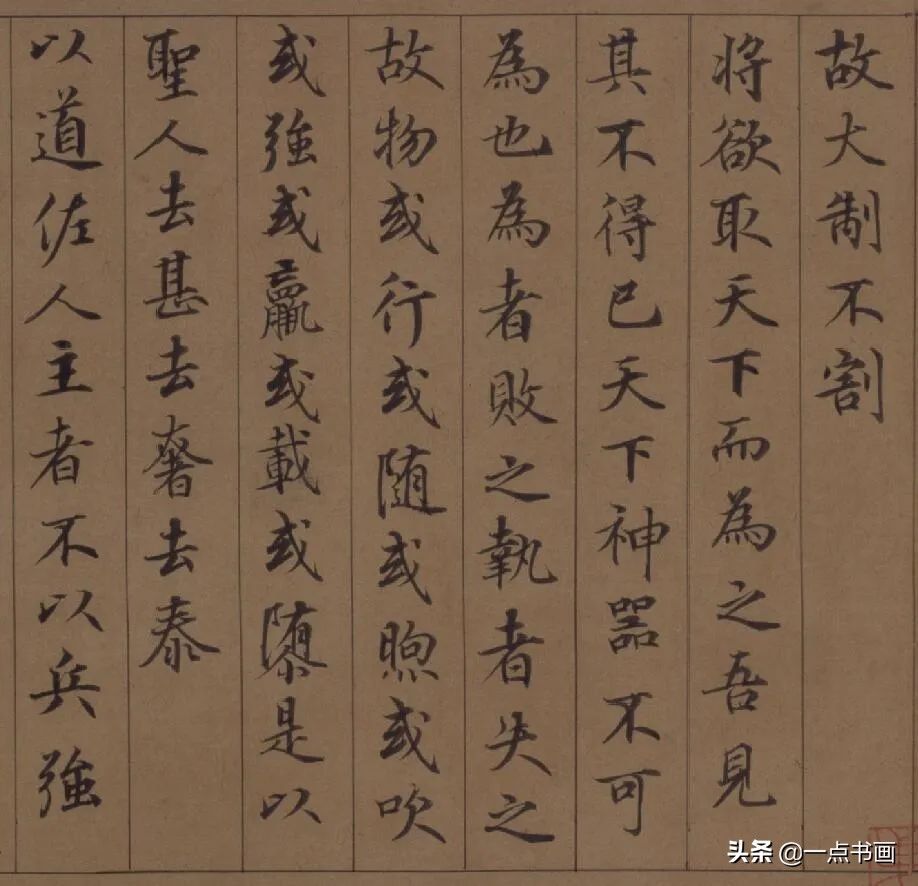 故大制不割
将欲取天下而為之吾見
其不得已天下神器不可
為也為者敗之執者失之
故物或行或随或煦或吹
或強或羸或載或隳是以
聖人去甚去奢去泰
以道佐人主者不以兵強
头条 @一点书画